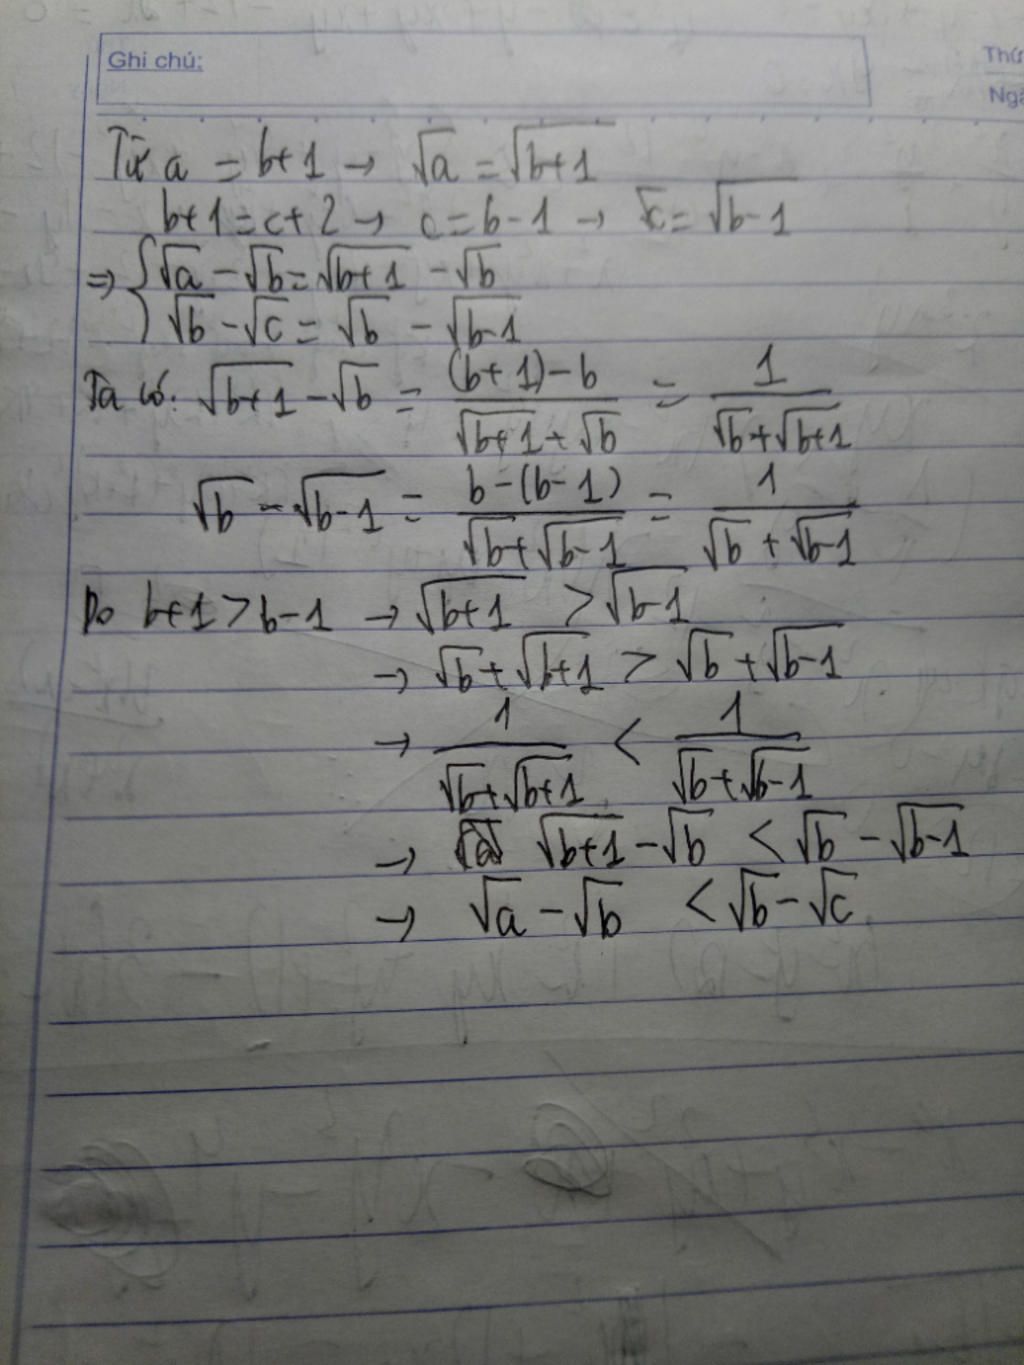 Ghi chú:
Thứ
Ngà
Từ a = b+1 → √a = √(b+1)
b+1 = c+2 → c = b-1 → √c = √(b-1)
⇒ { √a - √b = √(b+1) - √b
√b - √c = √b - √(b-1)
Ta có: √(b+1) - √b = ((b+1)-b)/(√(b+1) + √b) = 1/(√b + √(b+1))
√b - √(b-1) = (b-(b-1))/(√b + √(b-1)) = 1/(√b + √(b-1))
Do b+1 > b-1 → √(b+1) > √(b-1)
→ √b + √(b+1) > √b + √(b-1)
→ 1/(√b + √(b+1)) < 1/(√b + √(b-1))
→ √(b+1) - √b < √b - √(b-1)
→ √a - √b < √b - √c